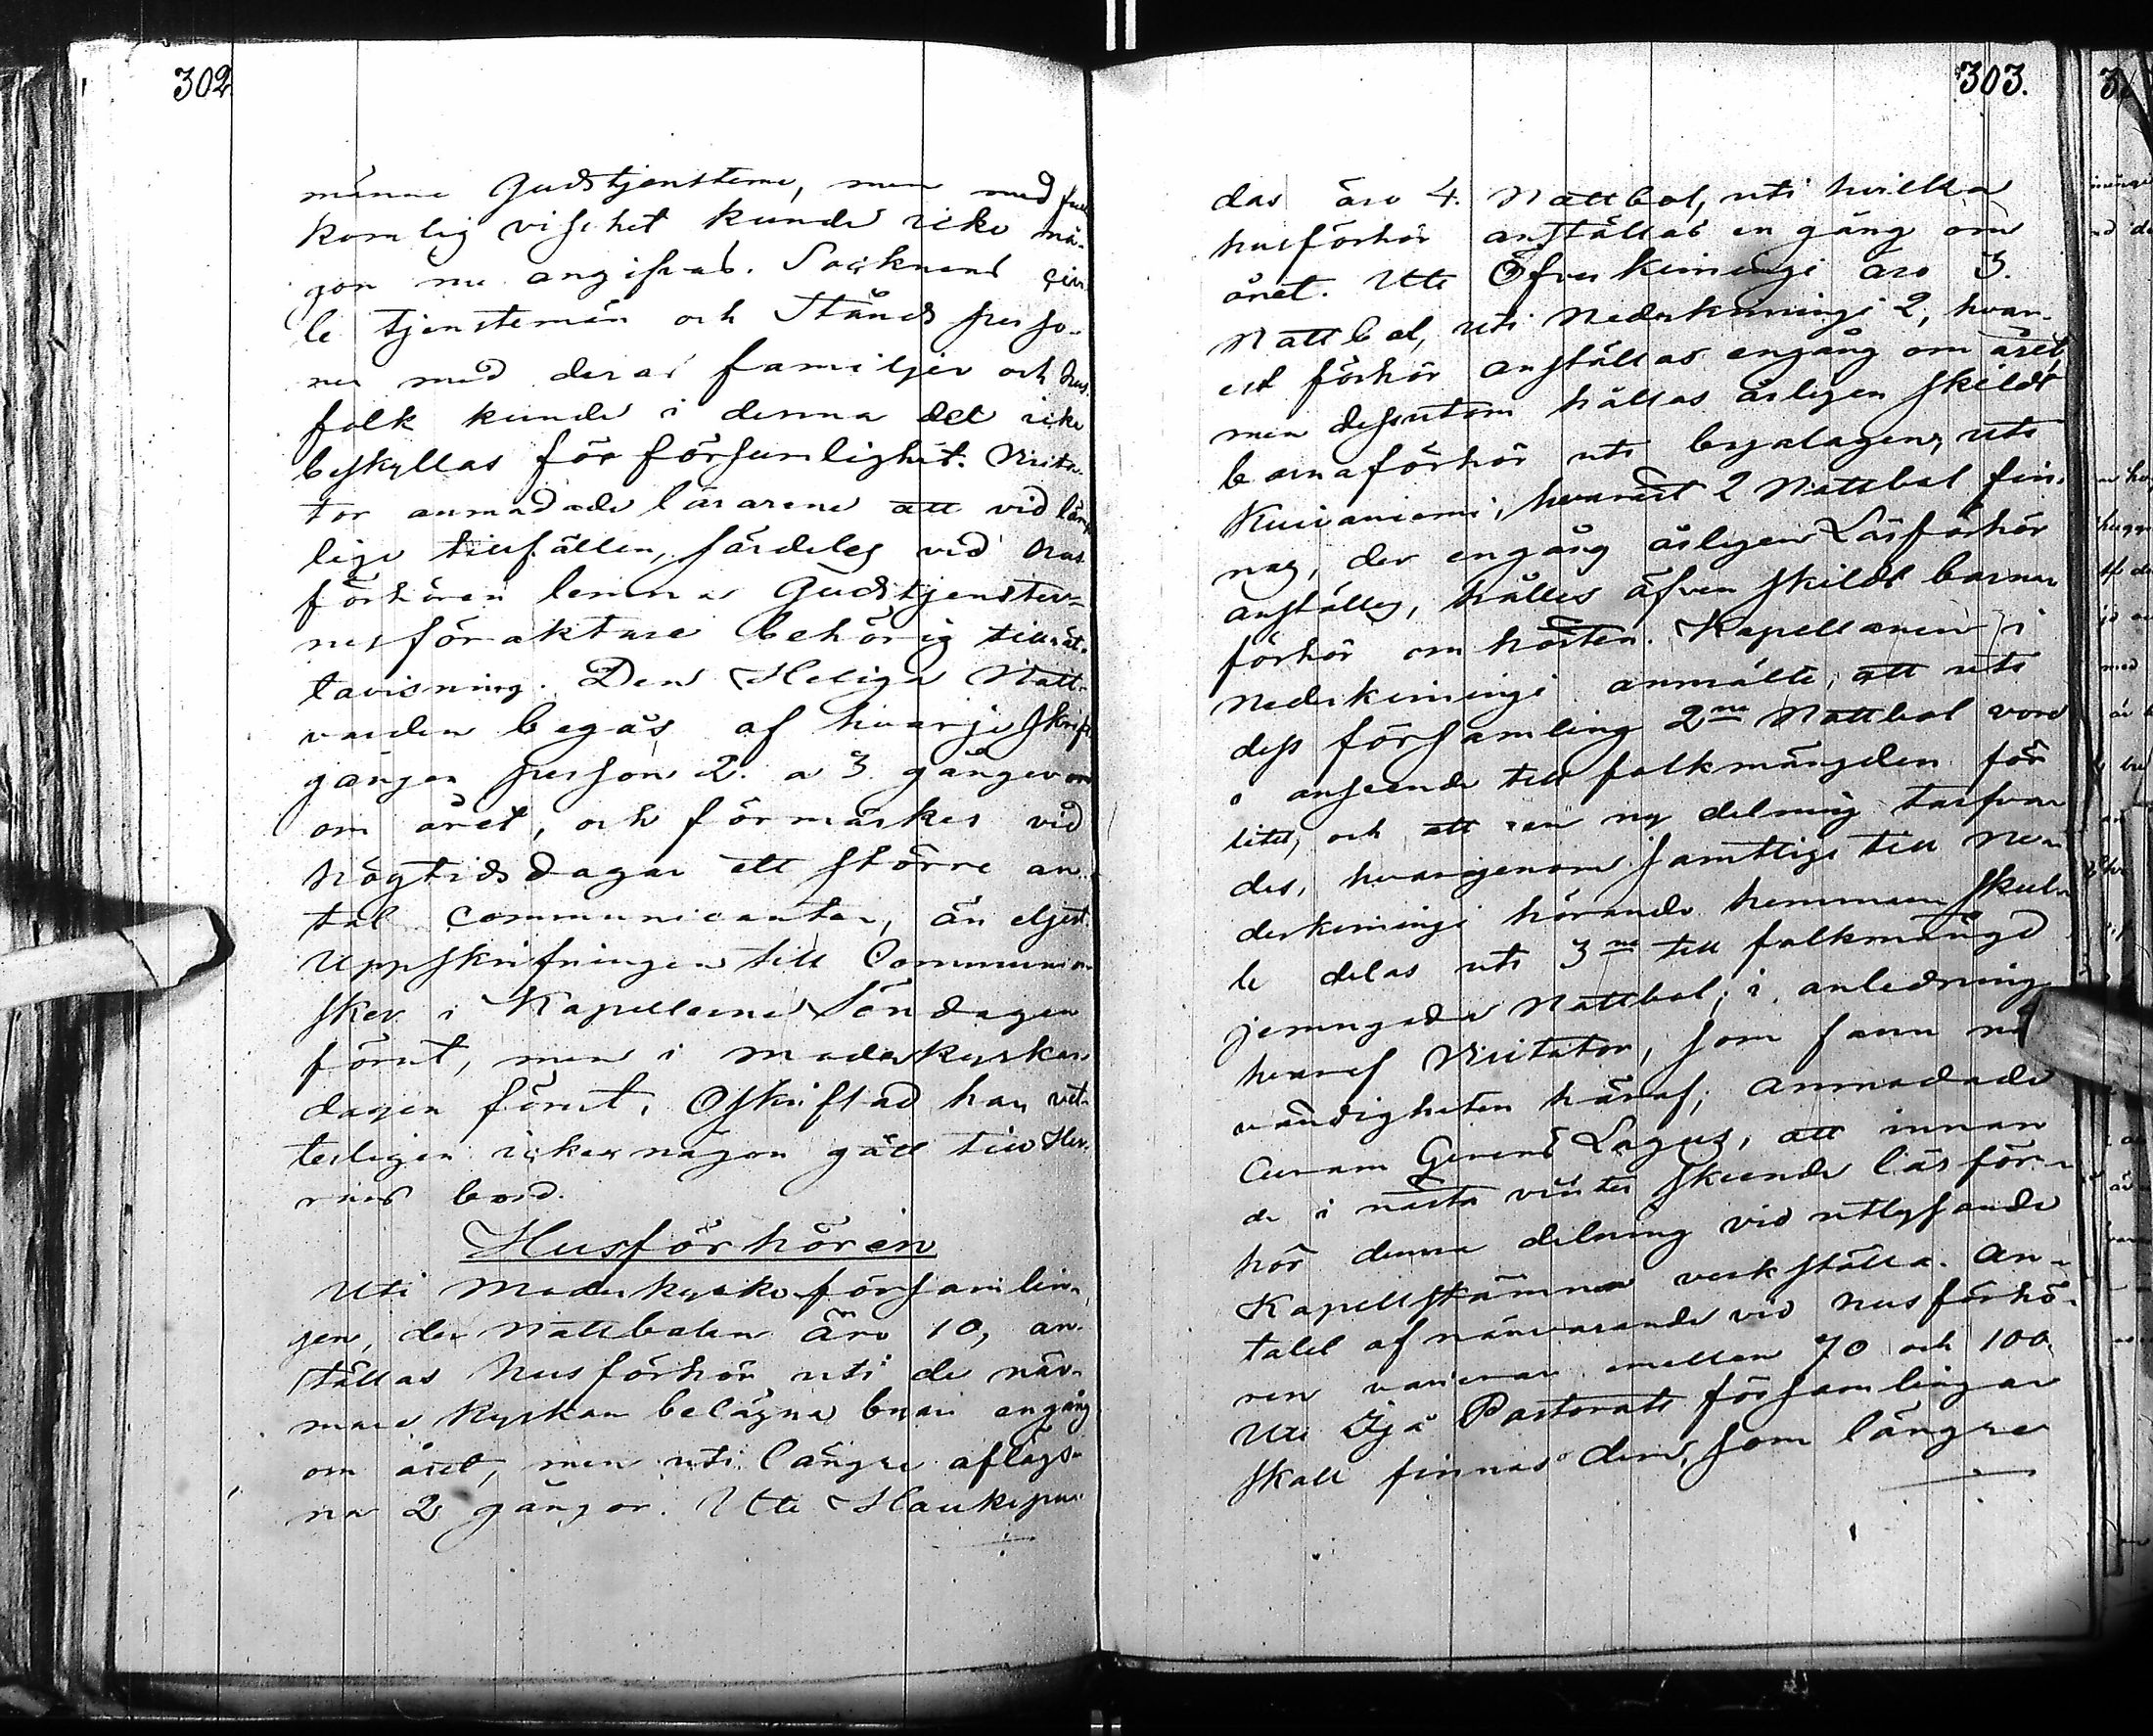 302.
männa Gudstjensterne, men med full
komlig visshet kunde icke nå-
gon nu angifvas. Socknens civi
le tjenstemän och Stånds perso-
ner med deras familjer och hus
folk kunde i denna del icke
beskyllas för försumlighet. Visita-
tor anmodade lärarene att vid lämp
lige tillfällen, särdeles vid hus
förhören lemna Gudstjenster-
nes föraktare behörig tillrät-
tavisning. Den Heliga Natt-
varden begås af hvarje skrift
gången person 2. a 3 gånger om
om året, och förmärkes vid
högtidsdagar ett större an-
tal communicanter, än eljest.
Uppskrifningen till Communion
sker i Kapellerne Söndagen
förut, men i moderkyrkan
dagen förut. Oskriftad har vet-
terligen icke någon gått till Her-
rans bord.
Husförhören
Uti Moderkyrko församlin-
gen, der Nattbolen äro 10, an-
ställas husförhör uti de när-
mare kyrkan belägna byar engång
om året, men uti längre aflägs-
na 2 gångor. Uti Haukipu
303.
das äro 4. Nattbol, uti hvilka
husförhör anställas en gång om
året. Uti Öfverkiiminge äro 3.
Nattbol, uti Nederkiminge 2, hvar-
est förhör anställas engång om året,
men dessutom hållas årligen skildt
barnaförhör uti byalagen, uti
Kuivaniemi, hvarest 2 Nattbol fin-
nas, der engång årligen Läsförhör
anställes, hålles äfven skildt barna
förhör om hösten. Kapellanen i
Nederkiminge anmälte, att uti
dess församling 2ne Nattbol vore
i anseende till folkmängden för
litet, och att en ny delning tarfva-
des, hvarigenom samtlige till Ne-
derkiminge hörande hemman skul-
le delas uti 3ne till folkmängd
jemngoda Nattbol, i anledning
hvaraf Visitator, som fann nöd
vändigheten häraf, anmodade
Curam Gerens Lagus, att innan
de i nästa vinter skeende läsför-
hör denna delning vid utlysande
Kapellstämma verkställa. An-
talet af närvarande vid husförhö-
ren varierar emellan 70 och 100.
Uti Ijå Pastorats församlingar
skall finnas dem, som längre